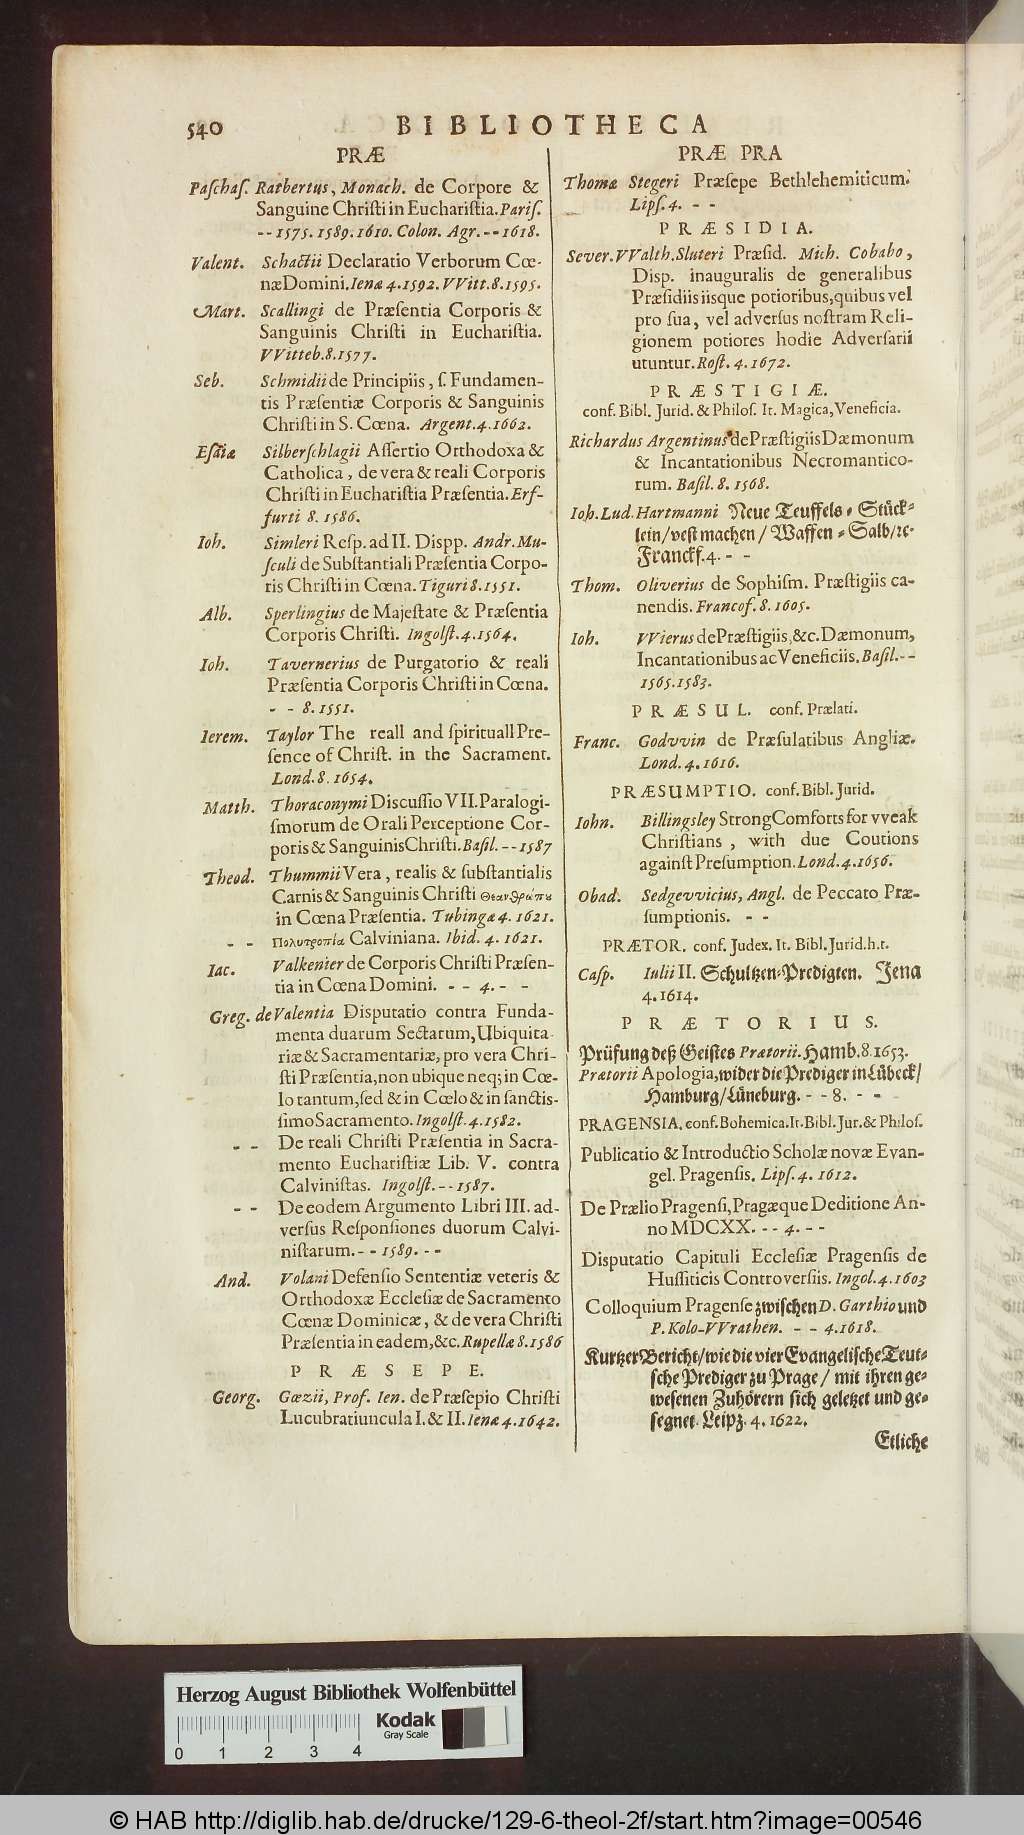 540 BIBLIOTHECA
PRÆ
Paſchaſ. Ratbertus, Monach. de Corpore &
Sanguine Chriſti in Euchariſtia. Pariſ.
-- 1575. 1589. 1610. Colon. Agr. -- 1618.
Valent. Schactii Declaratio Verborum Cœ-
næ Domini. Ienæ 4. 1592. VVitt. 8. 1595.
Mart. Scallingi de Præſentia Corporis &
Sanguinis Chriſti in Euchariſtia.
VVitteb. 8. 1577.
Seb. Schmidii de Principiis, ſ. Fundamen-
tis Præſentiæ Corporis & Sanguinis
Chriſti in S. Cœna. Argent. 4. 1662.
Eſaiæ Silberſchlagii Aſſertio Orthodoxa &
Catholica, de vera & reali Corporis
Chriſti in Euchariſtia Præſentia. Erf-
furti 8. 1586.
Ioh. Simleri Reſp. ad II. Diſpp. Andr. Mu-
ſculi de Subſtantiali Præſentia Corpo-
ris Chriſti in Cœna. Tiguri 8. 1551.
Alb. Sperlingius de Majeſtate & Præſentia
Corporis Chriſti. Ingolſt. 4. 1564.
Ioh. Tavernerius de Purgatorio & reali
Præſentia Corporis Chriſti in Cœna.
- - 8. 1551.
Ierem. Taylor The reall and ſpirituall Pre-
ſence of Chriſt. in the Sacrament.
Lond. 8. 1654.
Matth. Thoraconymi Diſcuſſio VII. Paralogi-
ſmorum de Orali Perceptione Cor-
poris & Sanguinis Chriſti. Baſil. -- 1587
Theod. Thummii Vera, realis & ſubſtantialis
Carnis & Sanguinis Chriſti Θεανθρώπȣ
in Cœna Præſentia. Tubingæ 4. 1621.
- - Πολυτροπία Calviniana. Ibid. 4. 1621.
Iac. Valkenier de Corporis Chriſti Præſen-
tia in Cœna Domini. - - 4. - -
Greg. de Valentia Diſputatio contra Funda-
menta duarum Sectarum, Ubiquita-
riæ & Sacramentariæ, pro vera Chri-
ſti Præſentia, non ubique neq; in Cœ-
lo tantum, ſed & in Cœlo & in ſanctis-
ſimo Sacramento. Ingolſt. 4. 1582.
- - De reali Chriſti Præſentia in Sacra-
mento Euchariſtiæ Lib. V. contra
Calviniſtas. Ingolſt. -- 1587.
- - De eodem Argumento Libri III. ad-
verſus Reſponſiones duorum Calvi-
niſtarum. - - 1589. - -
And. Volani Defenſio Sententiæ veteris &
Orthodoxæ Eccleſiæ de Sacramento
Cœnæ Dominicæ, & de vera Chriſti
Præſentia in eadem, &c. Rupellæ 8. 1586
PRÆSEPE.
Georg. Gœzii, Prof. Ien. de Præſepio Chriſti
Lucubratiuncula I. & II. Ienæ 4. 1642.
PRÆ PRA
Thomæ Stegeri Præſepe Bethlehemiticum.
Lipſ. 4. - -
PRÆSIDIA.
Sever. VValth. Sluteri Præſid. Mich. Cobabo,
Diſp. inauguralis de generalibus
Præſidiis iisque potioribus, quibus vel
pro ſua, vel adverſus noſtram Reli-
gionem potiores hodie Adverſarii
utuntur. Roſt. 4. 1672.
PRÆSTIGIÆ.
conf. Bibl. Jurid. & Philoſ. It. Magica, Veneficia.
Richardus Argentinus de Præſtigiis Dæmonum
& Incantationibus Necromantico-
rum. Baſil. 8. 1568.
Ioh. Lud. Hartmanni Neue Teuffels-Stück-
lein/ veſt machen/ Waffen-Salb/ ꝛc.
Franckf. 4. - -
Thom. Oliverius de Sophiſm. Præſtigiis ca-
nendis. Francof. 8. 1605.
Ioh. VVierus de Præſtigiis, &c. Dæmonum,
Incantationibus ac Veneficiis. Baſil. - -
1565. 1583.
PRÆSUL. conf. Prælati.
Franc. Godvvin de Præſulatibus Angliæ.
Lond. 4. 1616.
PRÆSUMPTIO. conf. Bibl. Jurid.
Iohn. Billingsley Strong Comforts for vveak
Chriſtians, with due Coutions
againſt Preſumption. Lond. 4. 1656.
Obad. Sedgevvicius, Angl. de Peccato Præ-
ſumptionis. - -
PRÆTOR. conf. Judex. It. Bibl. Jurid. h. t.
Caſp. Iulii II. Schultzen-Predigten. Jena
4. 1614.
PRÆTORIUS.
Prüfung deß Geiſtes Prætorii. Hamb. 8. 1653.
Prætorii Apologia, wider die Prediger in Lübeck/
Hamburg/ Lüneburg. - - 8. - -
PRAGENSIA. conf. Bohemica. It. Bibl. Jur. & Philoſ.
Publicatio & Introductio Scholæ novæ Evan-
gel. Pragenſis. Lipſ. 4. 1612.
De Prælio Pragenſi, Pragæque Deditione An-
no MDCXX. - - 4. - -
Diſputatio Capituli Eccleſiæ Pragenſis de
Huſſiticis Controverſiis. Ingol. 4. 1603
Colloquium Pragenſe zwiſchen D. Garthio und
P. Kolo-VVrathen. - - 4. 1618.
Kurtzer Bericht/ wie die vier Evangeliſche Teut-
ſche Prediger zu Prage/ mit ihren ge-
weſenen Zuhörern ſich geletzet und ge-
ſegnet. Leipz. 4. 1622.
Etliche
Herzog August Bibliothek Wolfenbüttel
Kodak
Gray Scale
0 1 2 3 4
© HAB http://diglib.hab.de/drucke/129-6-theol-2f/start.htm?image=00546